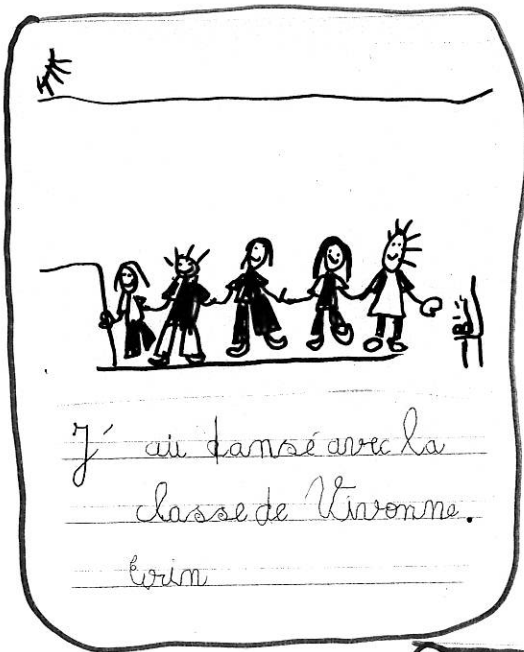 J'ai dansé avec la
classe de Vivonne.
Erin